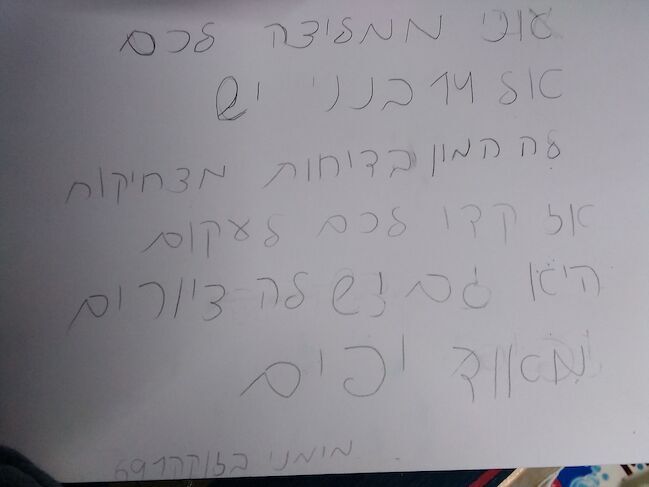 אוני ממליצה לכם
אל 14 בנני יש
לה המון בדיחות מצחיקות
אז קדי לכם לעקום
היא גם יש לה ציורים
מאווד יפים
מימני